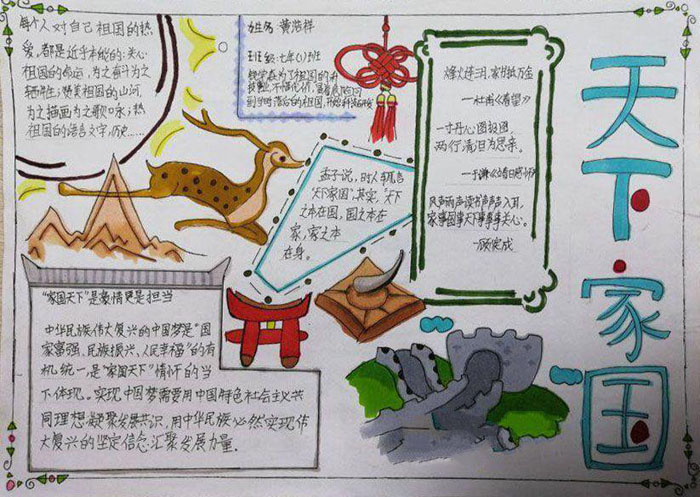 每个人对自己祖国的热
爱,都是近乎本能的:关心
祖国的命运,为之奋斗为之
牺牲;赞美祖国的山河,
为之描画为之歌咏;热
祖国的语言文字,历史……
姓名 黄浩祥
班级:七年(1)班
到当时落后的祖国,
烽火连三月,家书抵万金
——杜甫《春望》
一寸丹心图报国,
两行清泪为思亲。
风声雨声读书声声入耳,
家事国事天下事事事关心。
——顾宪成
天下·家国
孟子说,时人手
"天下家国",其实,"天下
之本在国,国之本在
家,家之本
在身。
"家国天下"是豪情更是担当
中华民族伟大复兴的中国梦是"国
家富强、民族振兴、人民幸福"的有
机统一,是"家国天下"情怀的当
下体现。实现中国梦需要用中国特色社会主义共
同理想凝聚发展共识,用中华民族必然实现伟
大复兴的坚定信念汇聚发展力量.